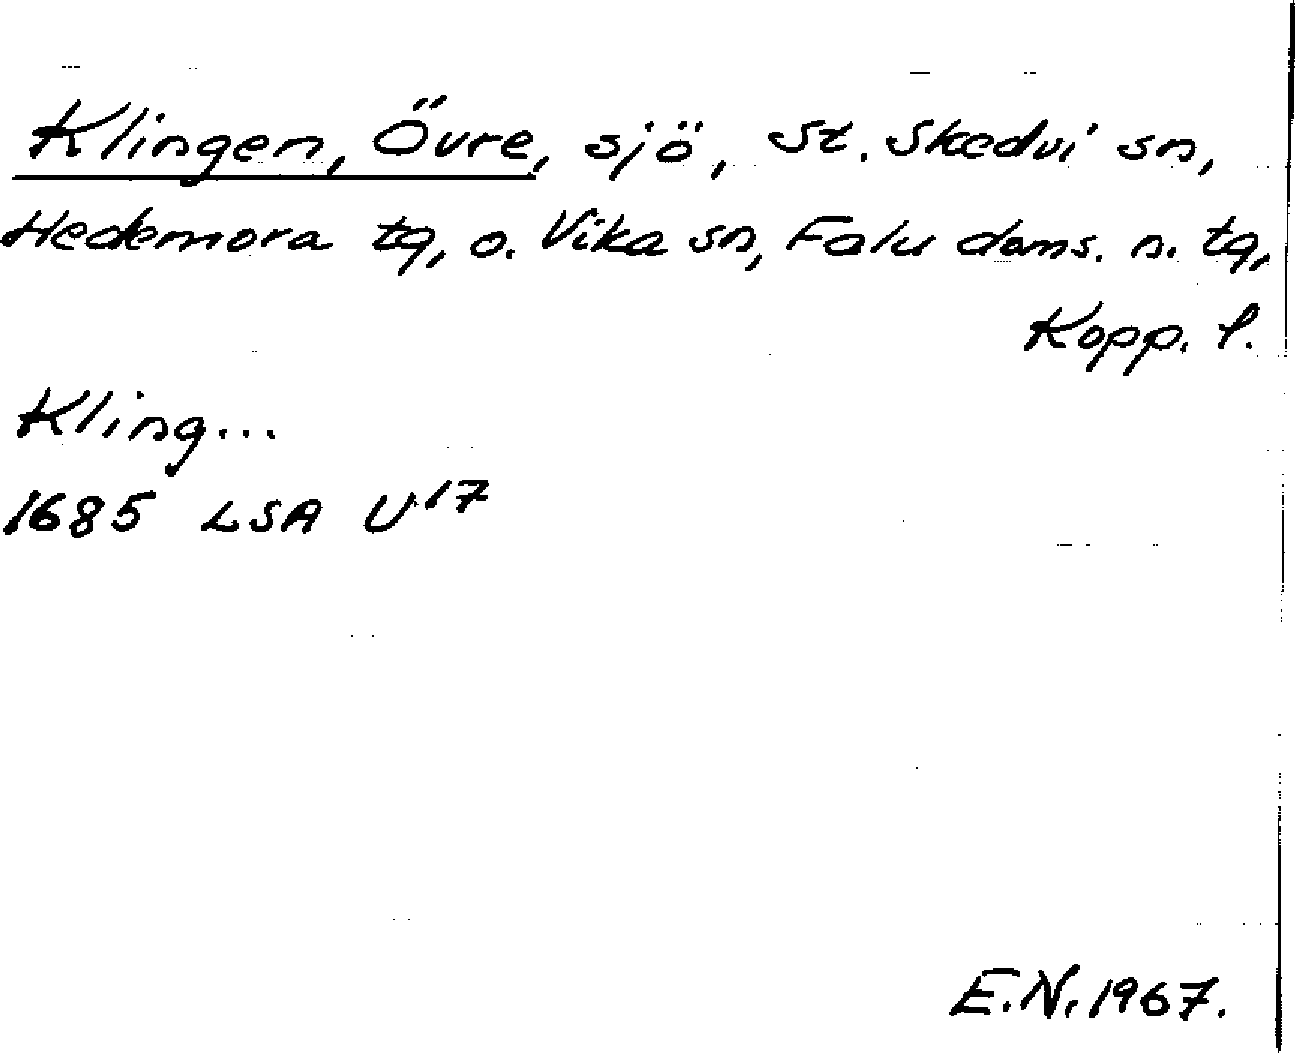 Klingen, Övre, sjö, St. Skedvi sn,
Hedemora tg, o. Vika sn, Falu doms. n. tg,
Kopp. l.
Kling...
1685 LSA U17
E.N. 1967.